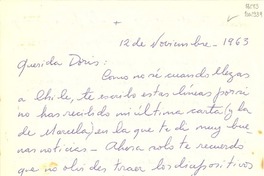 12 de Noviembre - 1963
Querida Doris:
Como no sé cuando llegas
a Chile, te escribo estas líneas por si
no has recibido mi última carta (y la
de Marcela) en la que te di muy bue-
nas noticias - Ahora solo te recuerdo
que no olvides traer los diapositivos